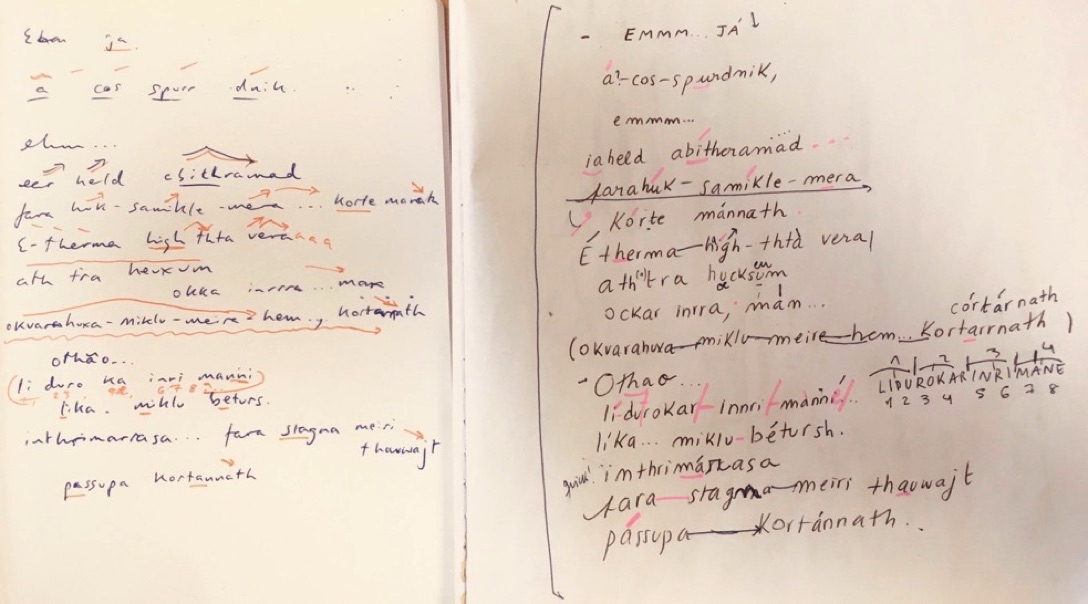 Eban ja.
a cos spur dnik.
ehm...
eer held abithramad
fara huk - samikle - mera ... korte manath
E - therma high thta vera a a a
ath tra heuxum
okka inrra ... mare
okvarahuxa - miklu - meira - hem ... kortannath
othão...
li duro ka inri manni
1 2 3 4 5 6 7 8
lika. miklu beturs.
inthrimarrasa... fara stagna meiri thauwajt
passupa kortannath
- EMMM... JÁ ↓
á?-cos-spurdnik,
emmm...
iaheld abitheramād ...
farahuk - samikle - mera
Kórte mánnath.
É, therma high - thtà vera/
ath tra hucksum
ockar inrra, mám...
córtárnath
(okvarahuxa - miklu - meire - hem... Kortarrnath)
- Othao...
1 2 3 4
LIDUROKAR INRI MANE
1 2 3 4 5 6 7 8
li-durokar innri manní...
líka... miklu-bétursh.
inthrimárrasa
fara - stagna - meiri thauwajt
pássupa Kortánnath..